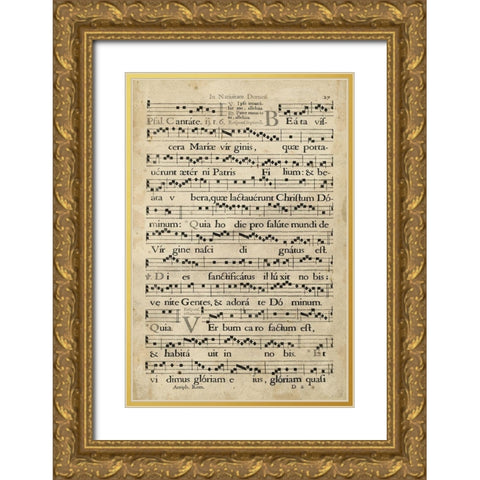 In Nativitate Domini. 27
Psal. Cantáte. fj. r. 6. B Eáta vis-
cera Mariæ vir ginis, quæ porta-
vérunt ætér ni Patris Fi lium: & be-
áta v bera, quæ lactavérunt Christum Dó-
minum: Quia ho die pro salúte mundi de
Vir gine nasci di gnátus est
Di es sanctificátus il lú xit no bis:
ve nite Gentes, & adorá te Dó minum.
Quia. V Er bum ca ro factum est,
& habitá uit in no bis. Et
vi dimus glóriam e ius, glóriam quasi
Antiph. Rom. D 2